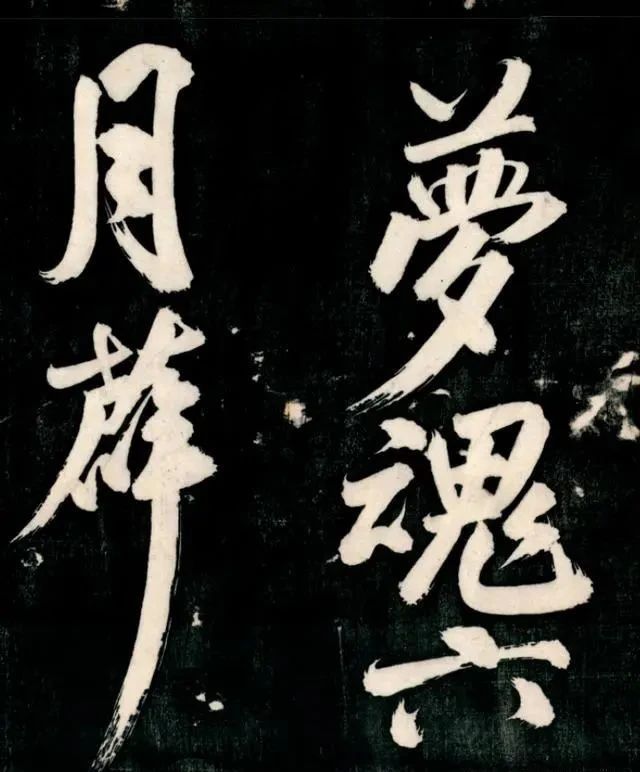 夢魂六
月